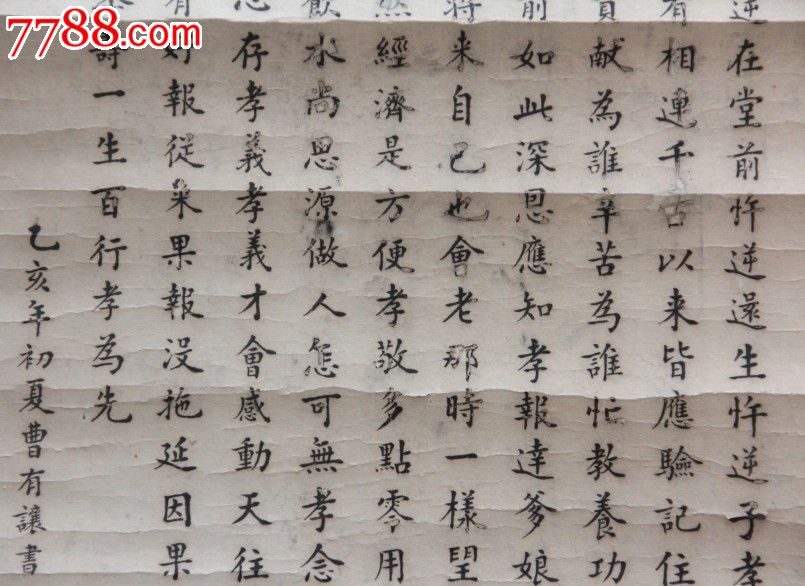 7788.com
逆在堂前忤逆還生忤逆子孝
有相連千古以来皆應驗記住
貢献為誰辛苦為誰忙教養功
前如此深恩應知孝報達爹娘
将来自己也會老那時一樣望
然經濟是方便孝敬多點零用
飲水尚思源做人怎可無孝念
心存孝義孝義才會感動天往
有好報從来果報没拖延因果
壽一生百行孝為先
乙亥年初夏曹有讓書